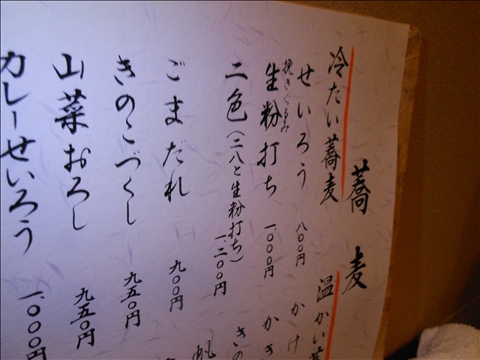 蕎麦
冷たい蕎麦
せいろう 八〇〇円
挽きぐるみ
生粉打ち 一、〇〇〇円
二色(二八と生粉打ち) 一、二〇〇円
ごまだれ 九〇〇円
きのこづくし 九五〇円
山菜おろし 九五〇円
カレーせいろう 一、〇〇〇円
温かい蕎
かけ
かき
きの